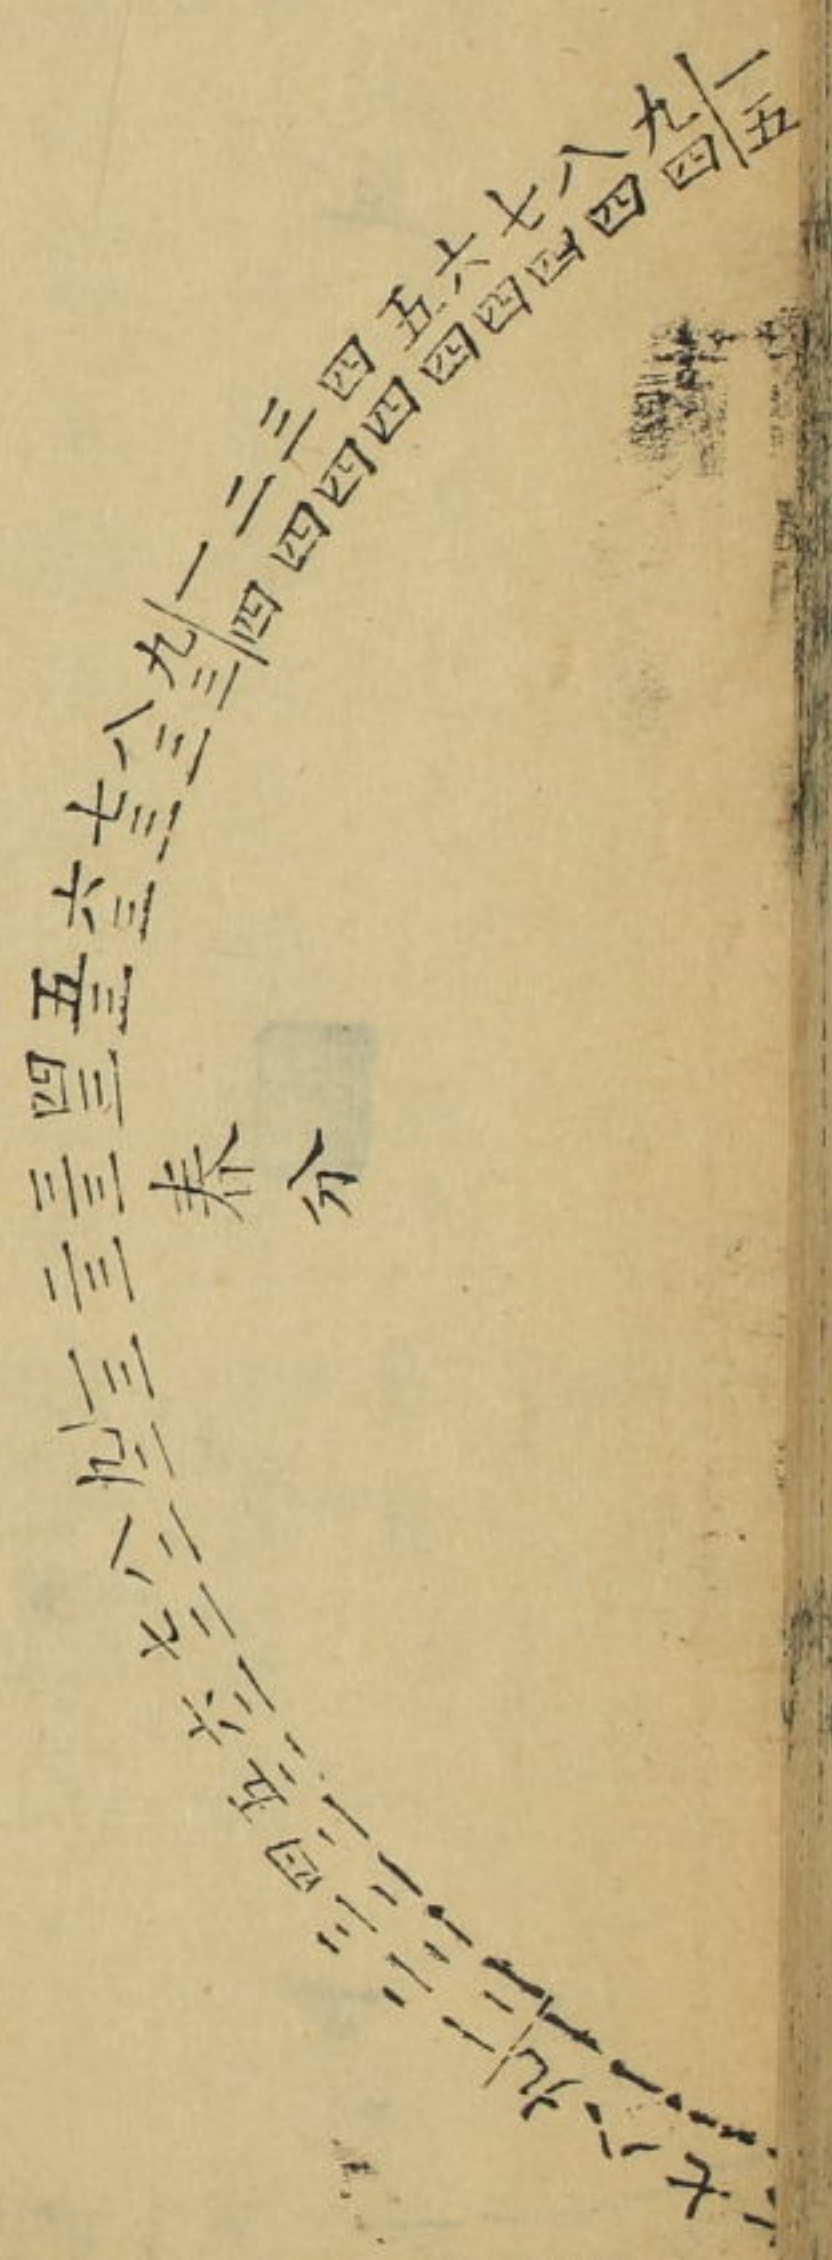 一五
九四
八四
七四
六四
五四
四四
三四
二四
一四
九三
八三
七三
六三
五三
四三
三三
二三
一三
九二
八二
七二
六二
五二
四二
三二
二二
一二
九一
八一
七一
春分